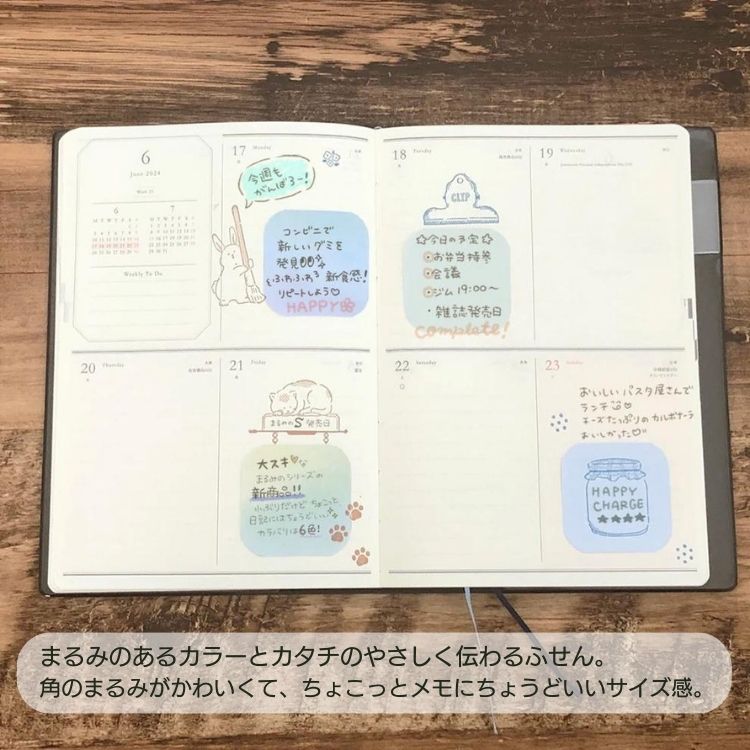 6
June 2024
Weekly To Do
17 Monday
今週も
がんばろー!
コンビニで
新しいグミを
発見
ふわふわ 新食感!
リピートしよう♡
HAPPY
18 Tuesday
CLIP
☆今日の予定☆
お弁当持参
会議
ジム 19:00〜
・雑誌発売日
Complete!
19 Wednesday
20 Thursday
21 Friday
まるみのS 発売日
大スキ♡な
まるみのシリーズの
新商品!!
小ぶりだけど ちょこっと
日記にはちょうどいい
カラバリは6色!
22 Saturday
23 Sunday
おいしい パスタ屋さんで
ランチ♡
チーズたっぷりの カルボナーラ
おいしかった♡
HAPPY
CHARGE
★★★★
まるみのあるカラーとカタチのやさしく伝わるふせん。
角のまるみがかわいくて、ちょこっとメモにちょうどいいサイズ感。